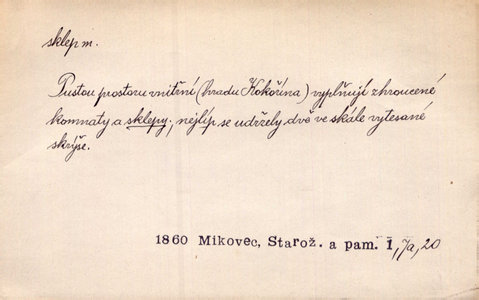 sklep m.
Pustou prostoru vnitřní (hradu Kokořína) vyplňují zhroucené
komnaty a sklepy; nejlíp se udržely dvě ve skále vytesané
skrýše.
1860 Mikovec, Starož. a pam. I, 7a, 20